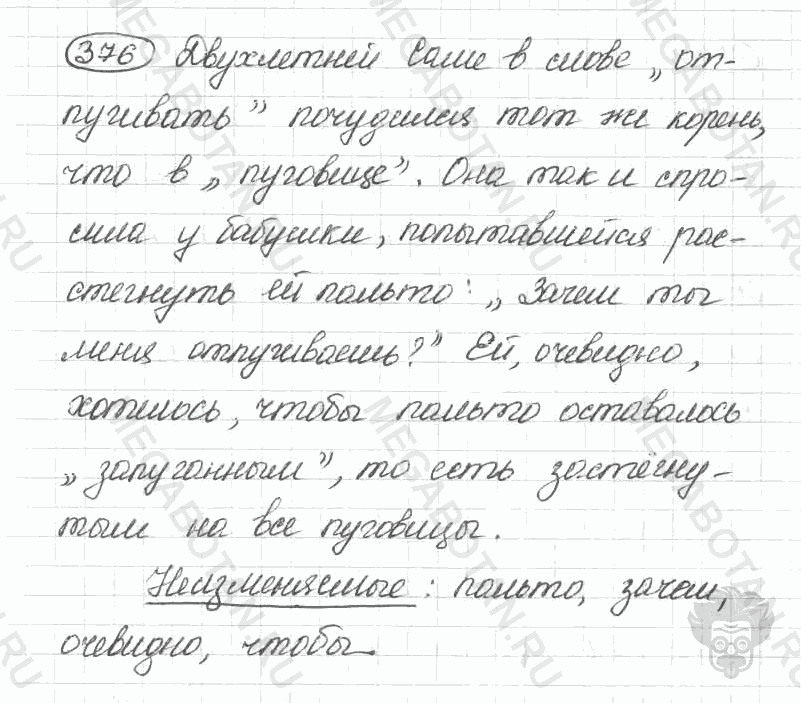 376 Двухлетней Саше в слове „от-
пугивать” почудился тот же корень,
что в „пуговице”. Она так и спро-
сила у бабушки, попытавшейся рас-
стегнуть ей пальто: „Зачем ты
меня отпугиваешь?” Ей, очевидно,
хотелось, чтобы пальто оставалось
„запуганным”, то есть застёгну-
тым на все пуговицы.
Неизменяемые: пальто, зачем,
очевидно, чтобы.
MEGABOTAN.RU